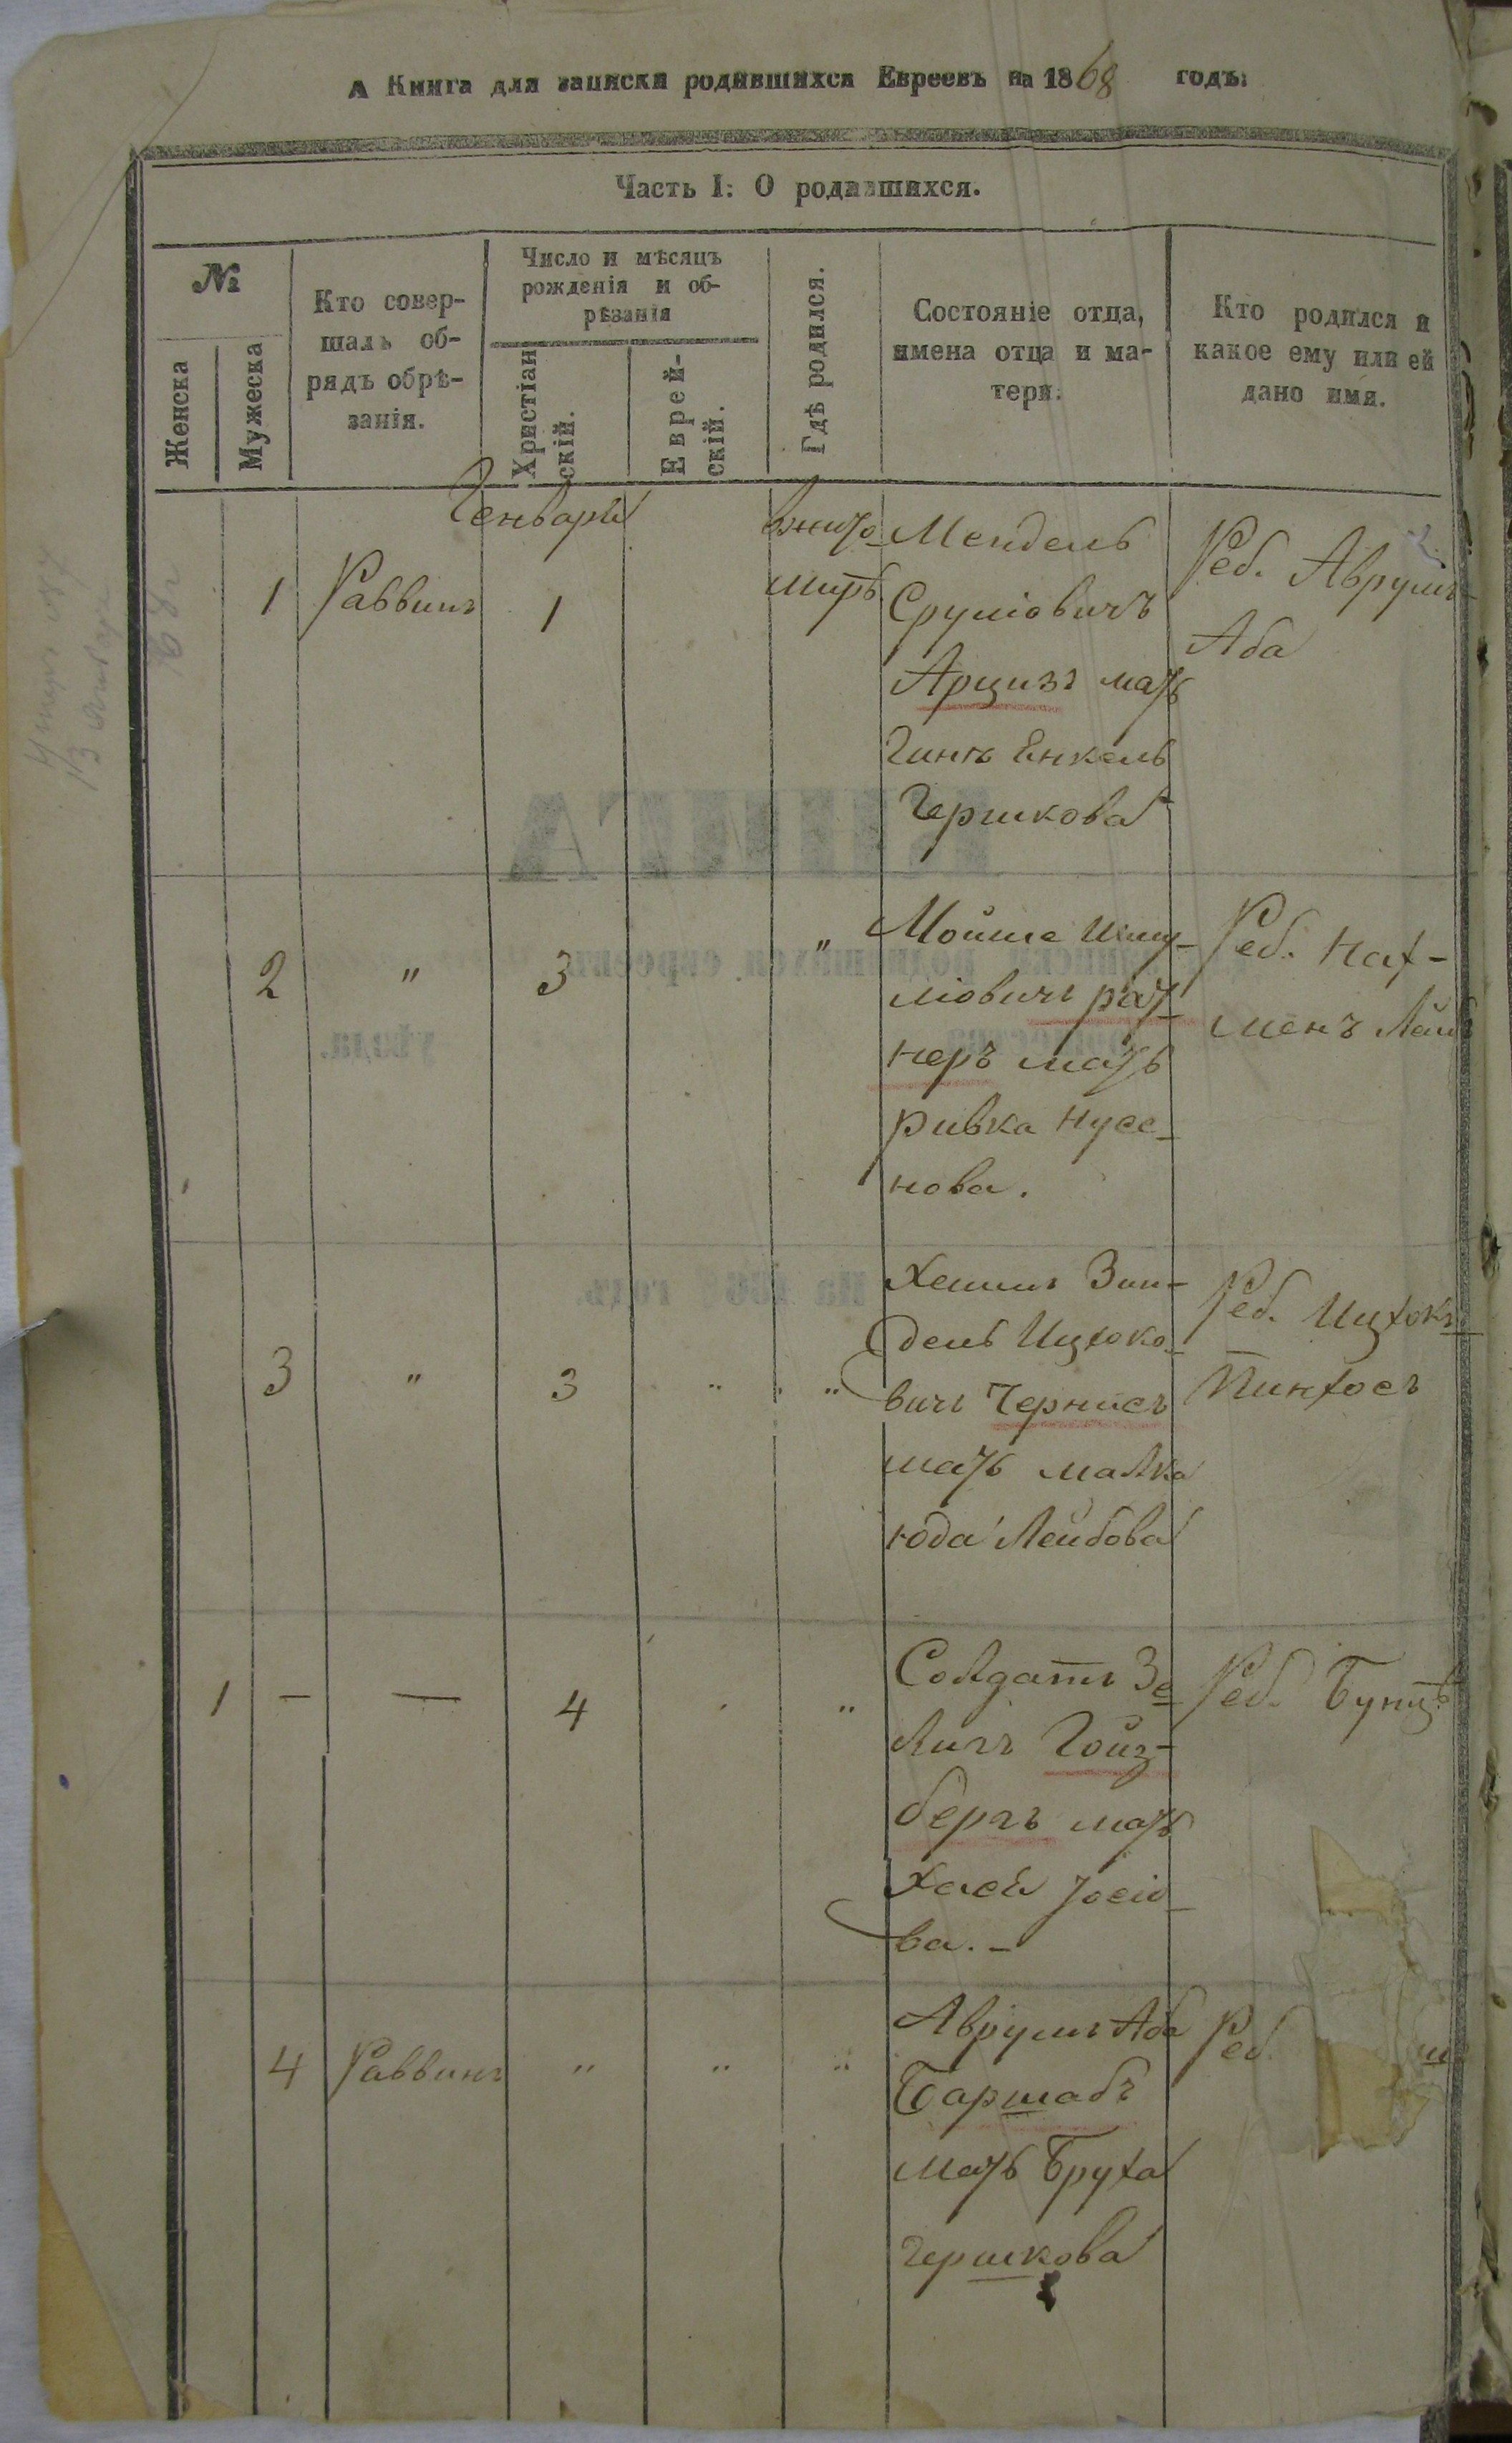 А Книга для записки родившихся Евреевъ на 1868 годъ:
Часть I: О родившихся.
№
Женска
Мужеска
Кто совер-
шалъ об-
рядъ обрѣ-
занія.
Число и мѣсяцъ
рожденія и об-
рѣзанія
Христіан
скій.
Еврей-
скій.
Гдѣ родился.
Состояніе отца,
имена отца и ма-
тери.
Кто родился и
какое ему или ей
дано имя.
Генваря
1 Раввинъ 1
вжито-
миръ
Мендель
Сруліовичъ
Арцизъ мать
Енкель
Гершкова
Реб. Аврумъ
Аба
2 " 3 "
Мойше Шму-
ліовичъ рат-
неръ мать
ривка Нусе-
нова.
Реб. Нах-
менъ Лейб
3 " 3 " "
Зин-
дель Ицхоко-
вичъ Чернисъ
мать малка
юда Лейбова
Реб. Ицхокъ
Пинхосъ
1 — — 4 "
Солдатъ Зе
лигъ Гойз-
бергъ мать
Хася Іосіо-
ва. -
Реб.
4 Раввинъ " " "
Аврумъ Аба
Баршадъ
мать Бруха
гершкова
Реб
ш
68 г
13 Января